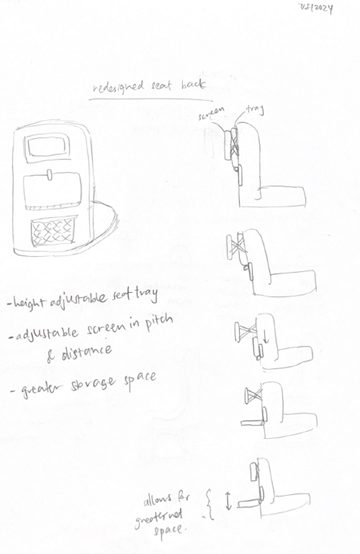 redesigned seat back
screen
tray
- height adjustable seat tray
- adjustable screen in pitch
& distance
- greater storage space
allows for
space.